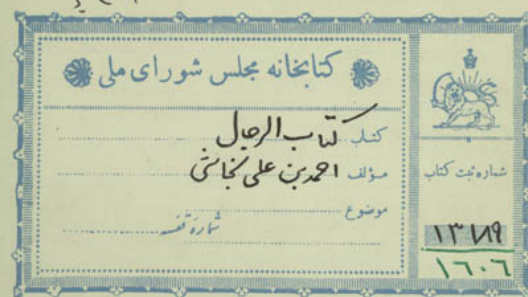 کتابخانه مجلس شورای ملی
کتاب کتاب الرجال
مؤلف احمد بن علی نجاشی
موضوع
شماره قفسه
شماره ثبت کتاب
۱۶۰۶